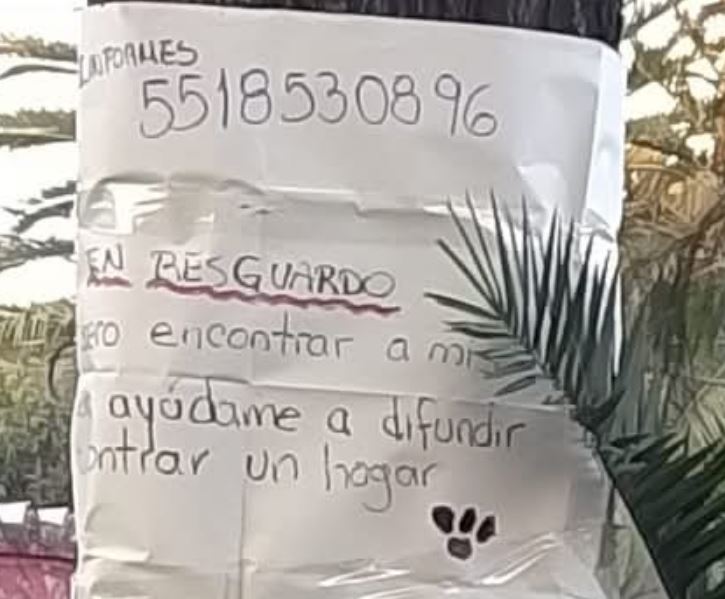 INFORMES
5518530896
EN RESGUARDO
encontrar a mi
ayúdame a difundir
un hogar